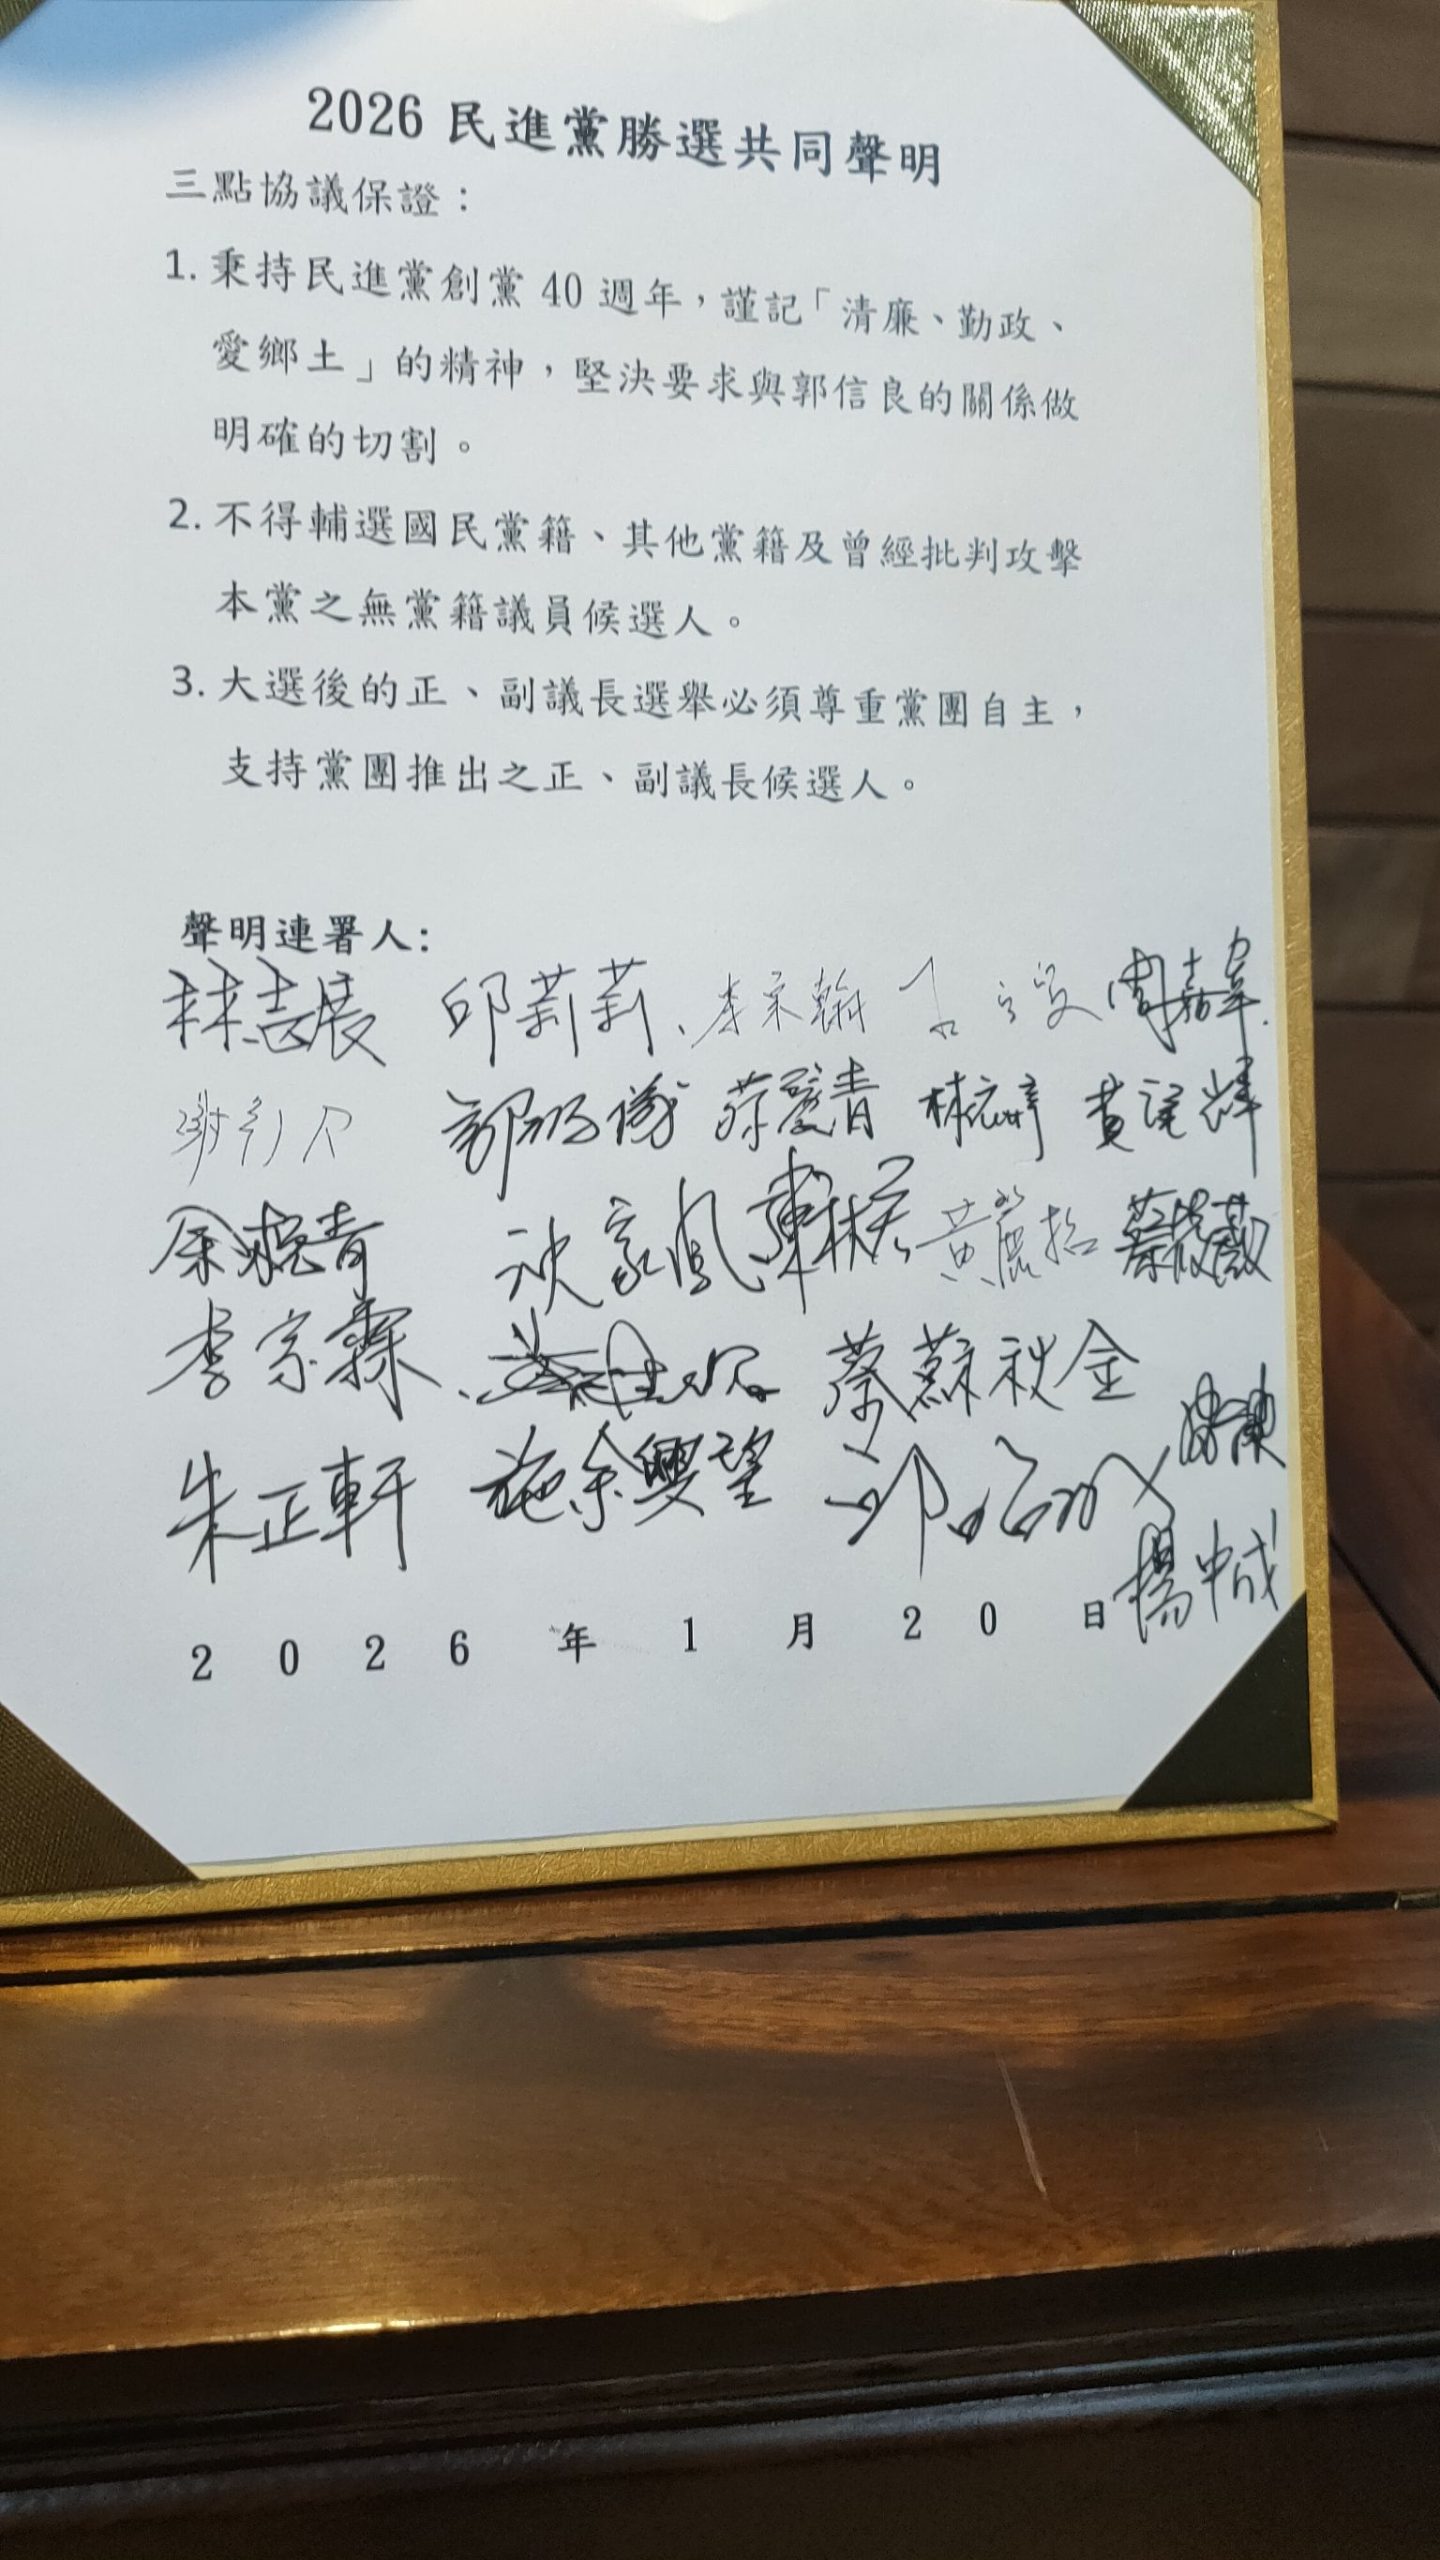 2026 民進黨勝選共同聲明
三點協議保證：
1. 秉持民進黨創黨 40 週年，謹記「清廉、勤政、
愛鄉土」的精神，堅決要求與郭信良的關係做
明確的切割。
2. 不得輔選國民黨籍、其他黨籍及曾經批判攻擊
本黨之無黨籍議員候選人。
3. 大選後的正、副議長選舉必須尊重黨團自主，
支持黨團推出之正、副議長候選人。
聲明連署人:
林志展 邱莉莉、李宗翰 周嘉韋
蔡筱薇
余柷青 沈家鳳 陳秋宏 黃麗招
李宗霖、 蔡蘇秋金
朱正軒 施余興望 邱昭
楊中成
2026年1月20日